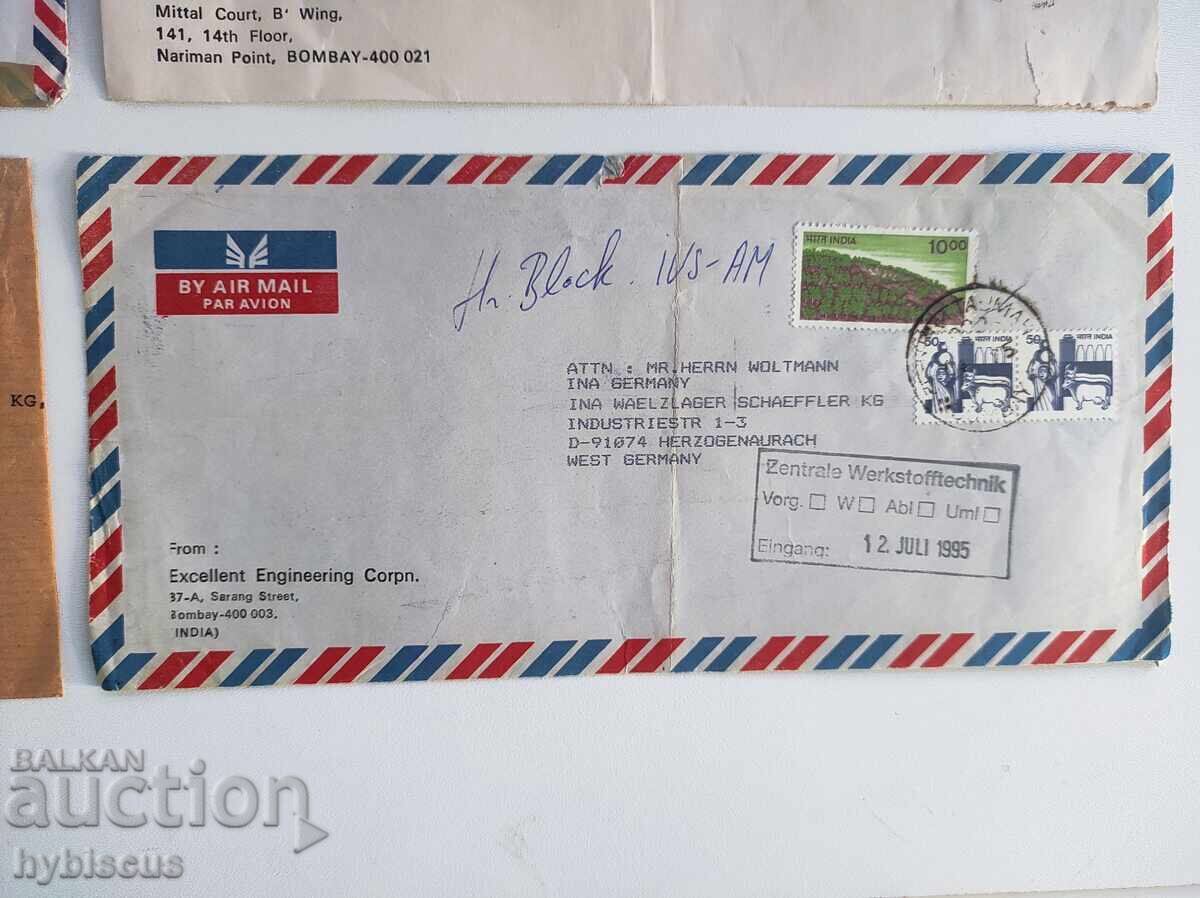 Mittal Court, B' Wing,
141, 14th Floor,
Nariman Point, BOMBAY-400 021
KG,
BY AIR MAIL
PAR AVION
Hr. Block. IVS-AM
भारत INDIA 10.00
50 भारत INDIA
50 भारत INDIA
ATTN : MR.HERRN WOLTMANN
INA GERMANY
INA WAELZLAGER SCHAEFFLER KG
INDUSTRIESTR 1-3
D-91074 HERZOGENAURACH
WEST GERMANY
Zentrale Werkstofftechnik
Vorg. W Abl Uml
Eingang: 12. JULI 1995
From :
Excellent Engineering Corpn.
37-A, Sarang Street,
Bombay-400 003.
(INDIA)
BALKAN
auction
hybiscus